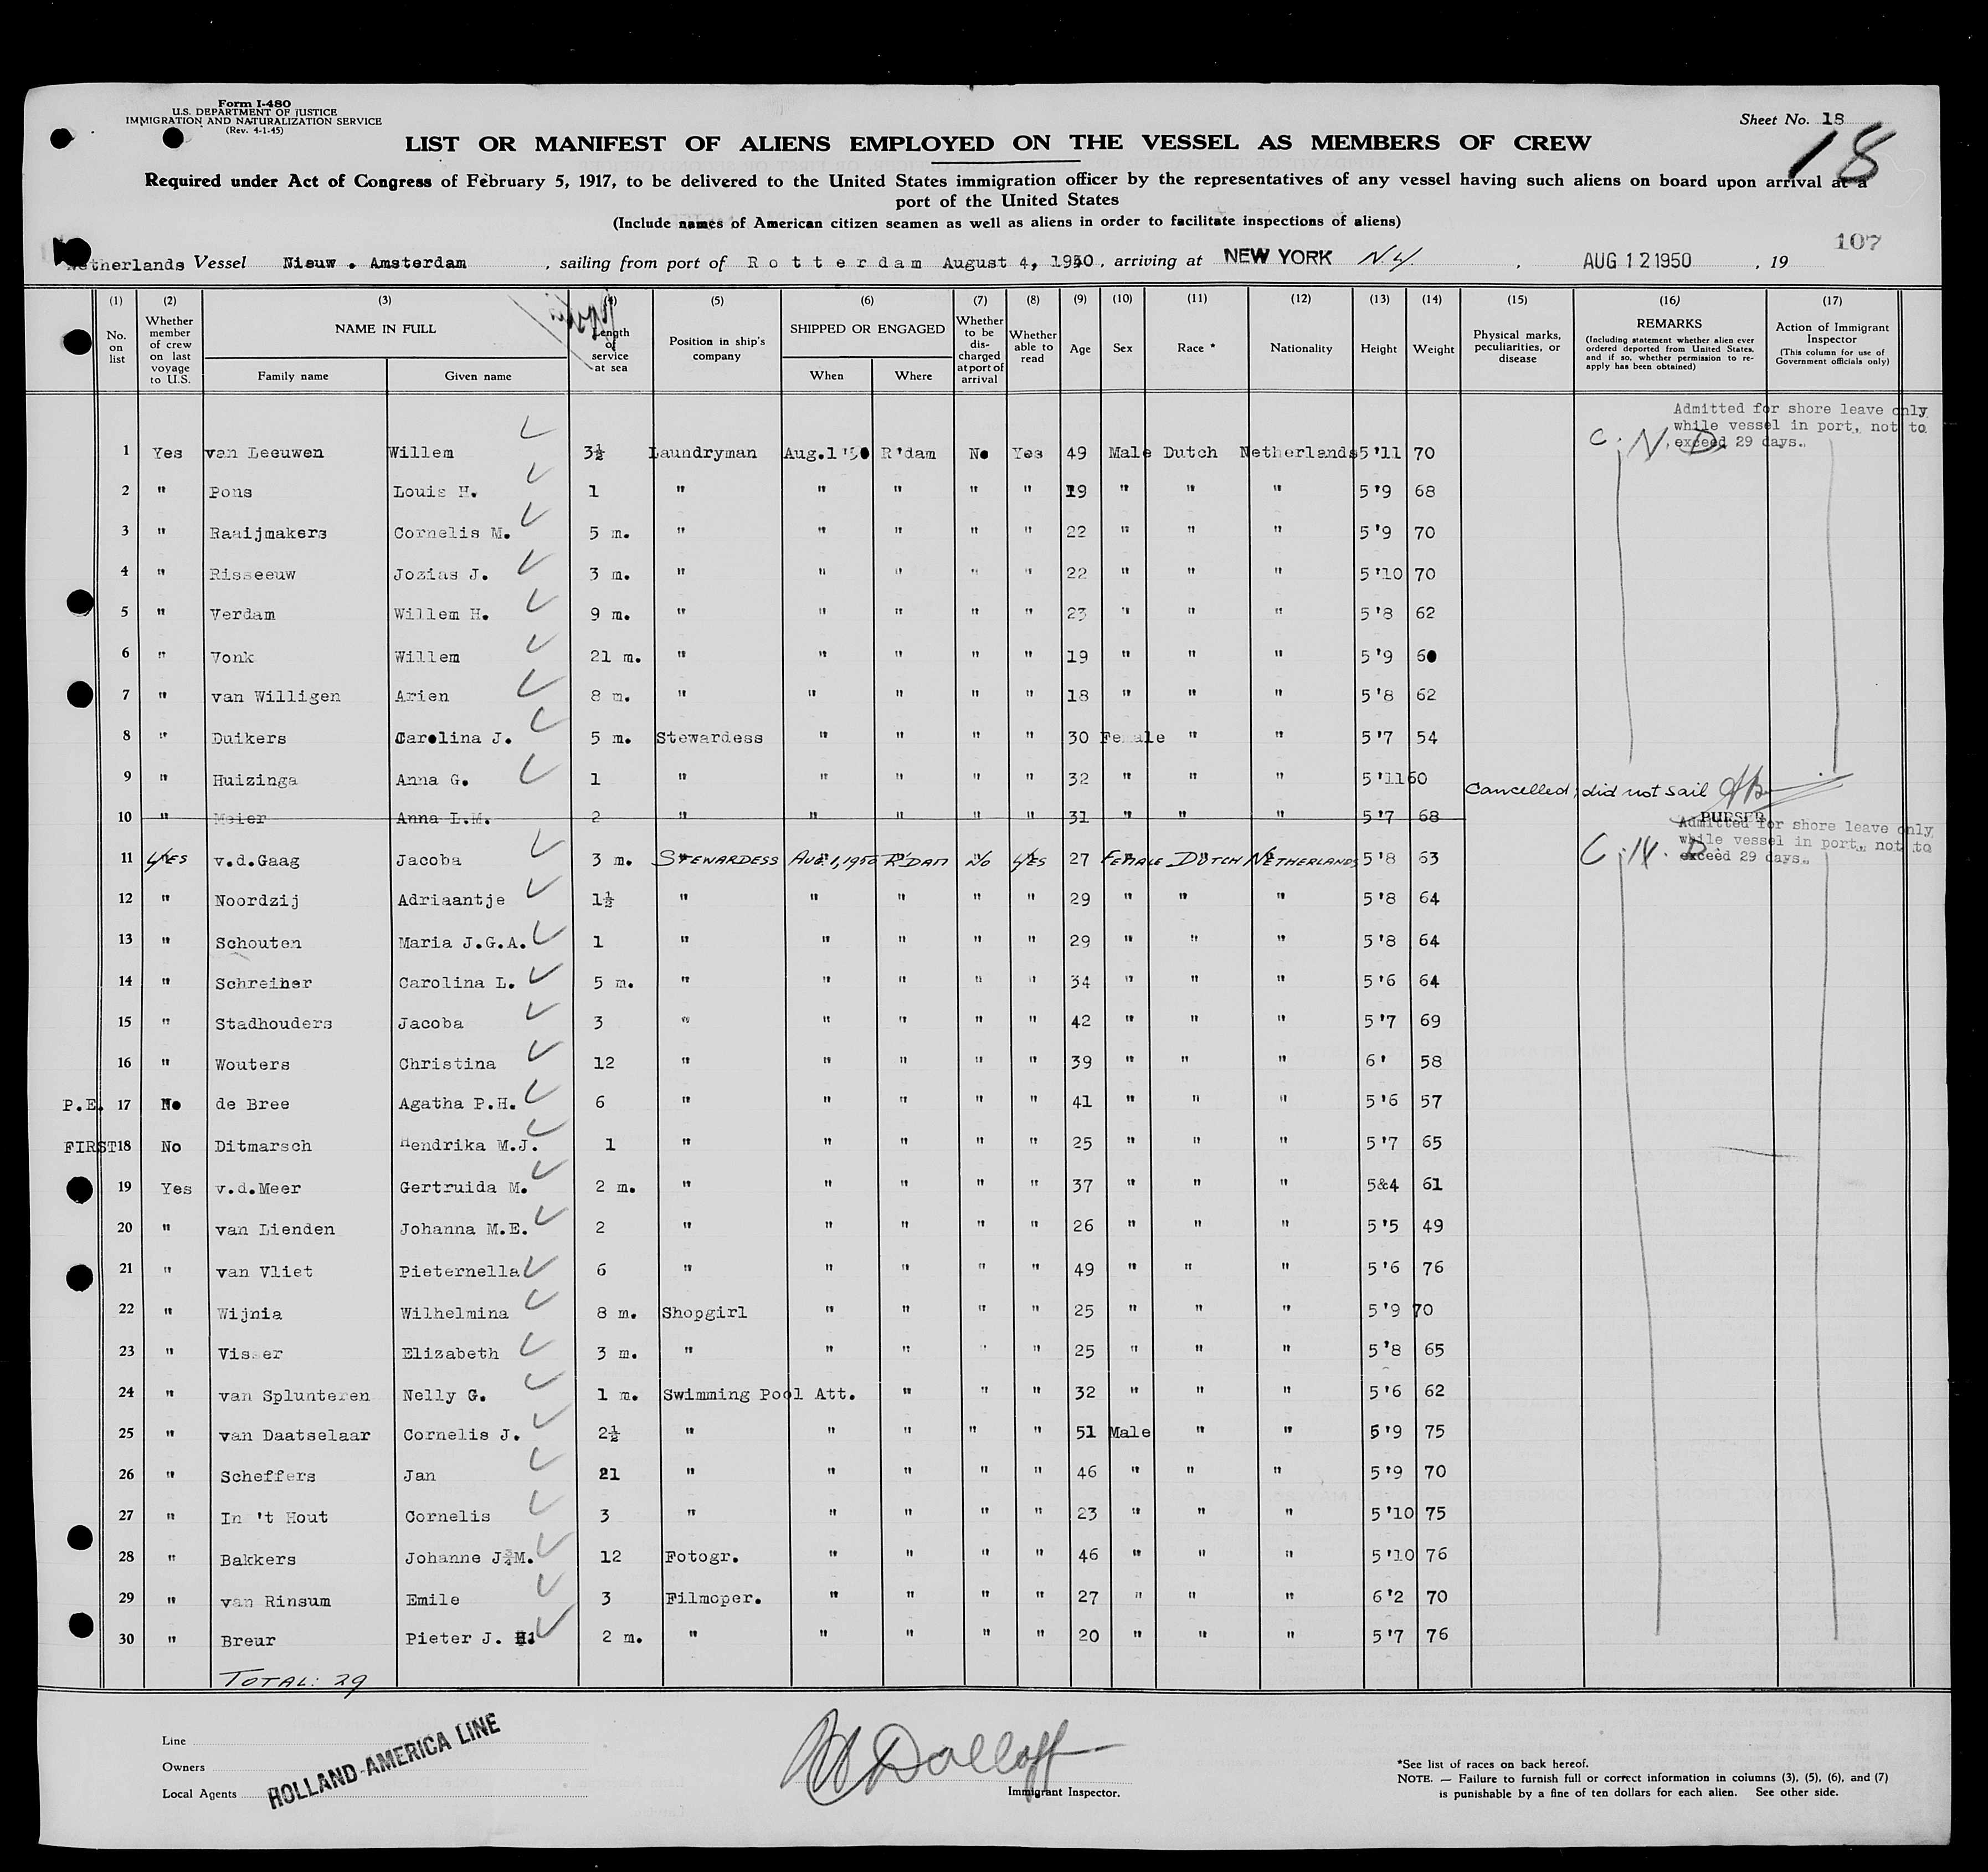 Form I-480
U.S. DEPARTMENT OF JUSTICE
IMMIGRATION AND NATURALIZATION SERVICE
(Rev. 4-1-45)
Sheet No. 18
18
LIST OR MANIFEST OF ALIENS EMPLOYED ON THE VESSEL AS MEMBERS OF CREW
Required under Act of Congress of February 5, 1917, to be delivered to the United States immigration officer by the representatives of any vessel having such aliens on board upon arrival at a
port of the United States
(Include names of American citizen seamen as well as aliens in order to facilitate inspections of aliens)
107
Netherlands Vessel Nieuw . Amsterdam , sailing from port of Rotterdam August 4, 1950, arriving at NEW YORK N.Y. , AUG 12 1950 , 19
(1) (2) (3) (4) (5) (6) (7) (8) (9) (10) (11) (12) (13) (14) (15) (16) (17)
No. on list
Whether member of crew on last voyage to U.S.
NAME IN FULL
Family name Given name
Length of service at sea
Position in ship's company
SHIPPED OR ENGAGED
When Where
Whether to be discharged at port of arrival
Whether able to read
Age Sex Race * Nationality Height Weight
Physical marks, peculiarities, or disease
REMARKS
(Including statement whether alien ever ordered deported from United States, and if so, whether permission to re-apply has been obtained)
Action of Immigrant Inspector
(This column for use of Government officials only)
Admitted for shore leave only
while vessel in port, not to
exceed 29 days.
C. N. D.
1 Yes van Leeuwen Willem 3½ Laundryman Aug.1'50 R'dam No Yes 49 Male Dutch Netherlands 5'11 70
2 " Pons Louis H. 1 " " " " " 19 " " " 5'9 68
3 " Raaijmakers Cornelis M. 5 m. " " " " " 22 " " " 5'9 70
4 " Risseeuw Jozias J. 3 m. " " " " " 22 " " " 5'10 70
5 " Verdam Willem H. 9 m. " " " " " 23 " " " 5'8 62
6 " Vonk Willem 21 m. " " " " " 19 " " " 5'9 60
7 " van Willigen Arien 8 m. " " " " " 18 " " " 5'8 62
8 " Duikers Carolina J. 5 m. Stewardess " " " " 30 Female " " 5'7 54
9 " Huizinga Anna G. 1 " " " " " 32 " " " 5'11 60
Cancelled, did not sail
PURSER
10 " Meier Anna L.M. 2 " " " 31 " " " 5'7 68
Admitted for shore leave only
while vessel in port, not to
exceed 29 days.
11 YES v.d.Gaag Jacoba 3 m. STEWARDESS AUG.1,1950 R'DAM NO YES 27 FEMALE DUTCH NETHERLANDS 5'8 63
12 " Noordzij Adriaantje 1½ " " " " " 29 " " " 5'8 64
13 " Schouten Maria J.G.A. 1 " " " " " 29 " " " 5'8 64
14 " Schreiner Carolina L. 5 m. " " " " " 34 " " " 5'6 64
15 " Stadhouders Jacoba 3 " " " " " 42 " " " 5'7 69
16 " Wouters Christina 12 " " " " " 39 " " " 6' 58
P.E. 17 No de Bree Agatha P.H. 6 " " " " " 41 " " " 5'6 57
FIRST 18 No Ditmarsch Hendrika M.J. 1 " " " " " 25 " " " 5'7 65
19 Yes v.d.Meer Gertruida M. 2 m. " " " " " 37 " " " 5&4 61
20 " van Lienden Johanna M.E. 2 " " " " " 26 " " " 5'5 49
21 " van Vliet Pieternella 6 " " " " " 49 " " " 5'6 76
22 " Wijnia Wilhelmina 8 m. Shopgirl " " " " 25 " " " 5'9 70
23 " Visser Elizabeth 3 m. " " " " " 25 " " " 5'8 65
24 " van Splunteren Nelly G. 1 m. Swimming Pool Att. " " " 32 " " " 5'6 62
25 " van Daatselaar Cornelis J. 2½ " " " " " 51 Male " " 5'9 75
26 " Scheffers Jan 21 " " " " " 46 " " " 5'9 70
27 " In 't Hout Cornelis 3 " " " " " 23 " " " 5'10 75
28 " Bakkers Johanne J.M. 12 Fotogr. " " " " 46 " " " 5'10 76
29 " van Rinsum Emile 3 Filmoper. " " " " 27 " " " 6'2 70
30 " Breur Pieter J. H. 2 m. " " " " " 20 " " " 5'7 76
TOTAL: 29
Line
Owners
Local Agents
HOLLAND-AMERICA LINE
Dolloff
Immigrant Inspector.
*See list of races on back hereof.
NOTE. — Failure to furnish full or correct information in columns (3), (5), (6), and (7)
is punishable by a fine of ten dollars for each alien. See other side.